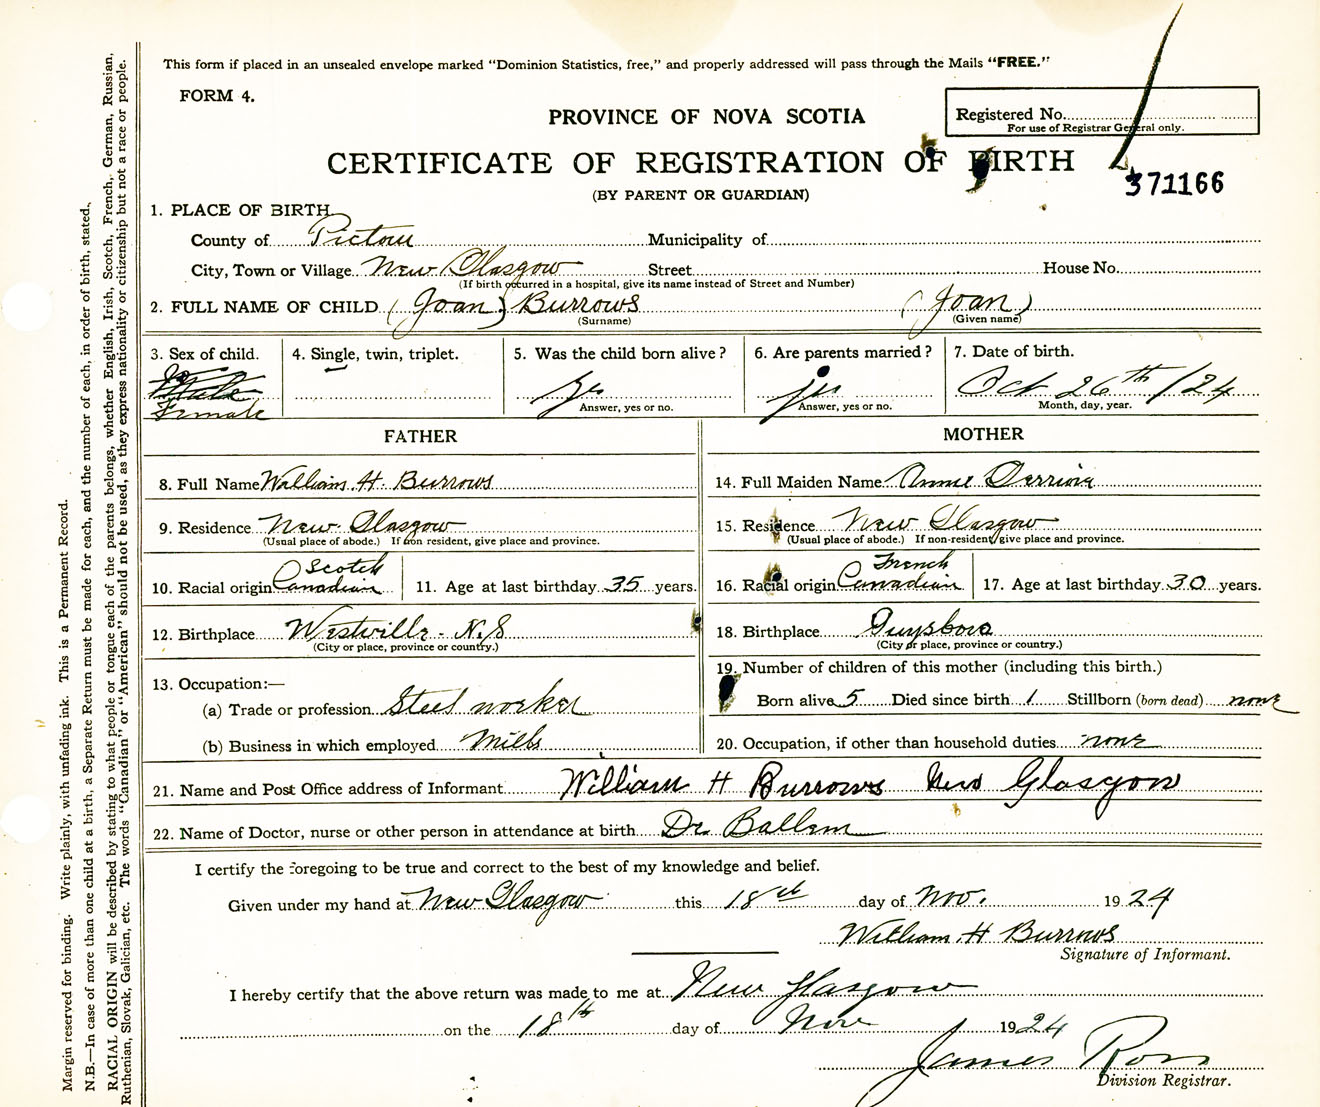 This form if placed in an unsealed envelope marked "Dominion Statistics, free," and properly addressed will pass through the Mails "FREE."
FORM 4.
PROVINCE OF NOVA SCOTIA
Registered No.
For use of Registrar General only.
CERTIFICATE OF REGISTRATION OF BIRTH
371166
(BY PARENT OR GUARDIAN)
1. PLACE OF BIRTH
County of Pictou Municipality of
City, Town or Village New Glasgow Street House No.
(If birth occurred in a hospital, give its name instead of Street and Number)
2. FULL NAME OF CHILD (Joan) Burrows (Joan)
(Surname) (Given name)
3. Sex of child. 4. Single, twin, triplet. 5. Was the child born alive? 6. Are parents married? 7. Date of birth.
Male
Female yes yes Oct 26th /24
Answer, yes or no. Answer, yes or no. Month, day, year.
FATHER MOTHER
8. Full Name William H. Burrows 14. Full Maiden Name Annie
9. Residence New Glasgow 15. Residence New Glasgow
(Usual place of abode.) If non resident, give place and province. (Usual place of abode.) If non-resident, give place and province.
Scotch French
10. Racial origin Canadian 11. Age at last birthday 35 years. 16. Racial origin Canadian 17. Age at last birthday 30 years.
12. Birthplace Westville - N.S 18. Birthplace Guysboro
(City or place, province or country.) (City or place, province or country.)
19. Number of children of this mother (including this birth.)
13. Occupation:—
(a) Trade or profession Steel worker Born alive 5 Died since birth 1 Stillborn (born dead) none
(b) Business in which employed Mills 20. Occupation, if other than household duties none
21. Name and Post Office address of Informant William H Burrows New Glasgow
22. Name of Doctor, nurse or other person in attendance at birth Dr. Ballem
I certify the foregoing to be true and correct to the best of my knowledge and belief.
Given under my hand at New Glasgow this 18th day of Nov. 1924
William H Burrows
Signature of Informant.
I hereby certify that the above return was made to me at New Glasgow
on the 18th day of Nov 1924
James Ross
Division Registrar.
Margin reserved for binding. Write plainly, with unfading ink. This is a Permanent Record.
N.B.—In case of more than one child at a birth, a Separate Return must be made for each, and the number of each, in order of birth, stated.
RACIAL ORIGIN will be described by stating to what people or tongue each of the parents belongs, whether English, Irish, Scotch, French, German, Russian,
Ruthenian, Slovak, Galician, etc. The words "Canadian" or "American" should not be used, as they express nationality or citizenship but not a race or people.